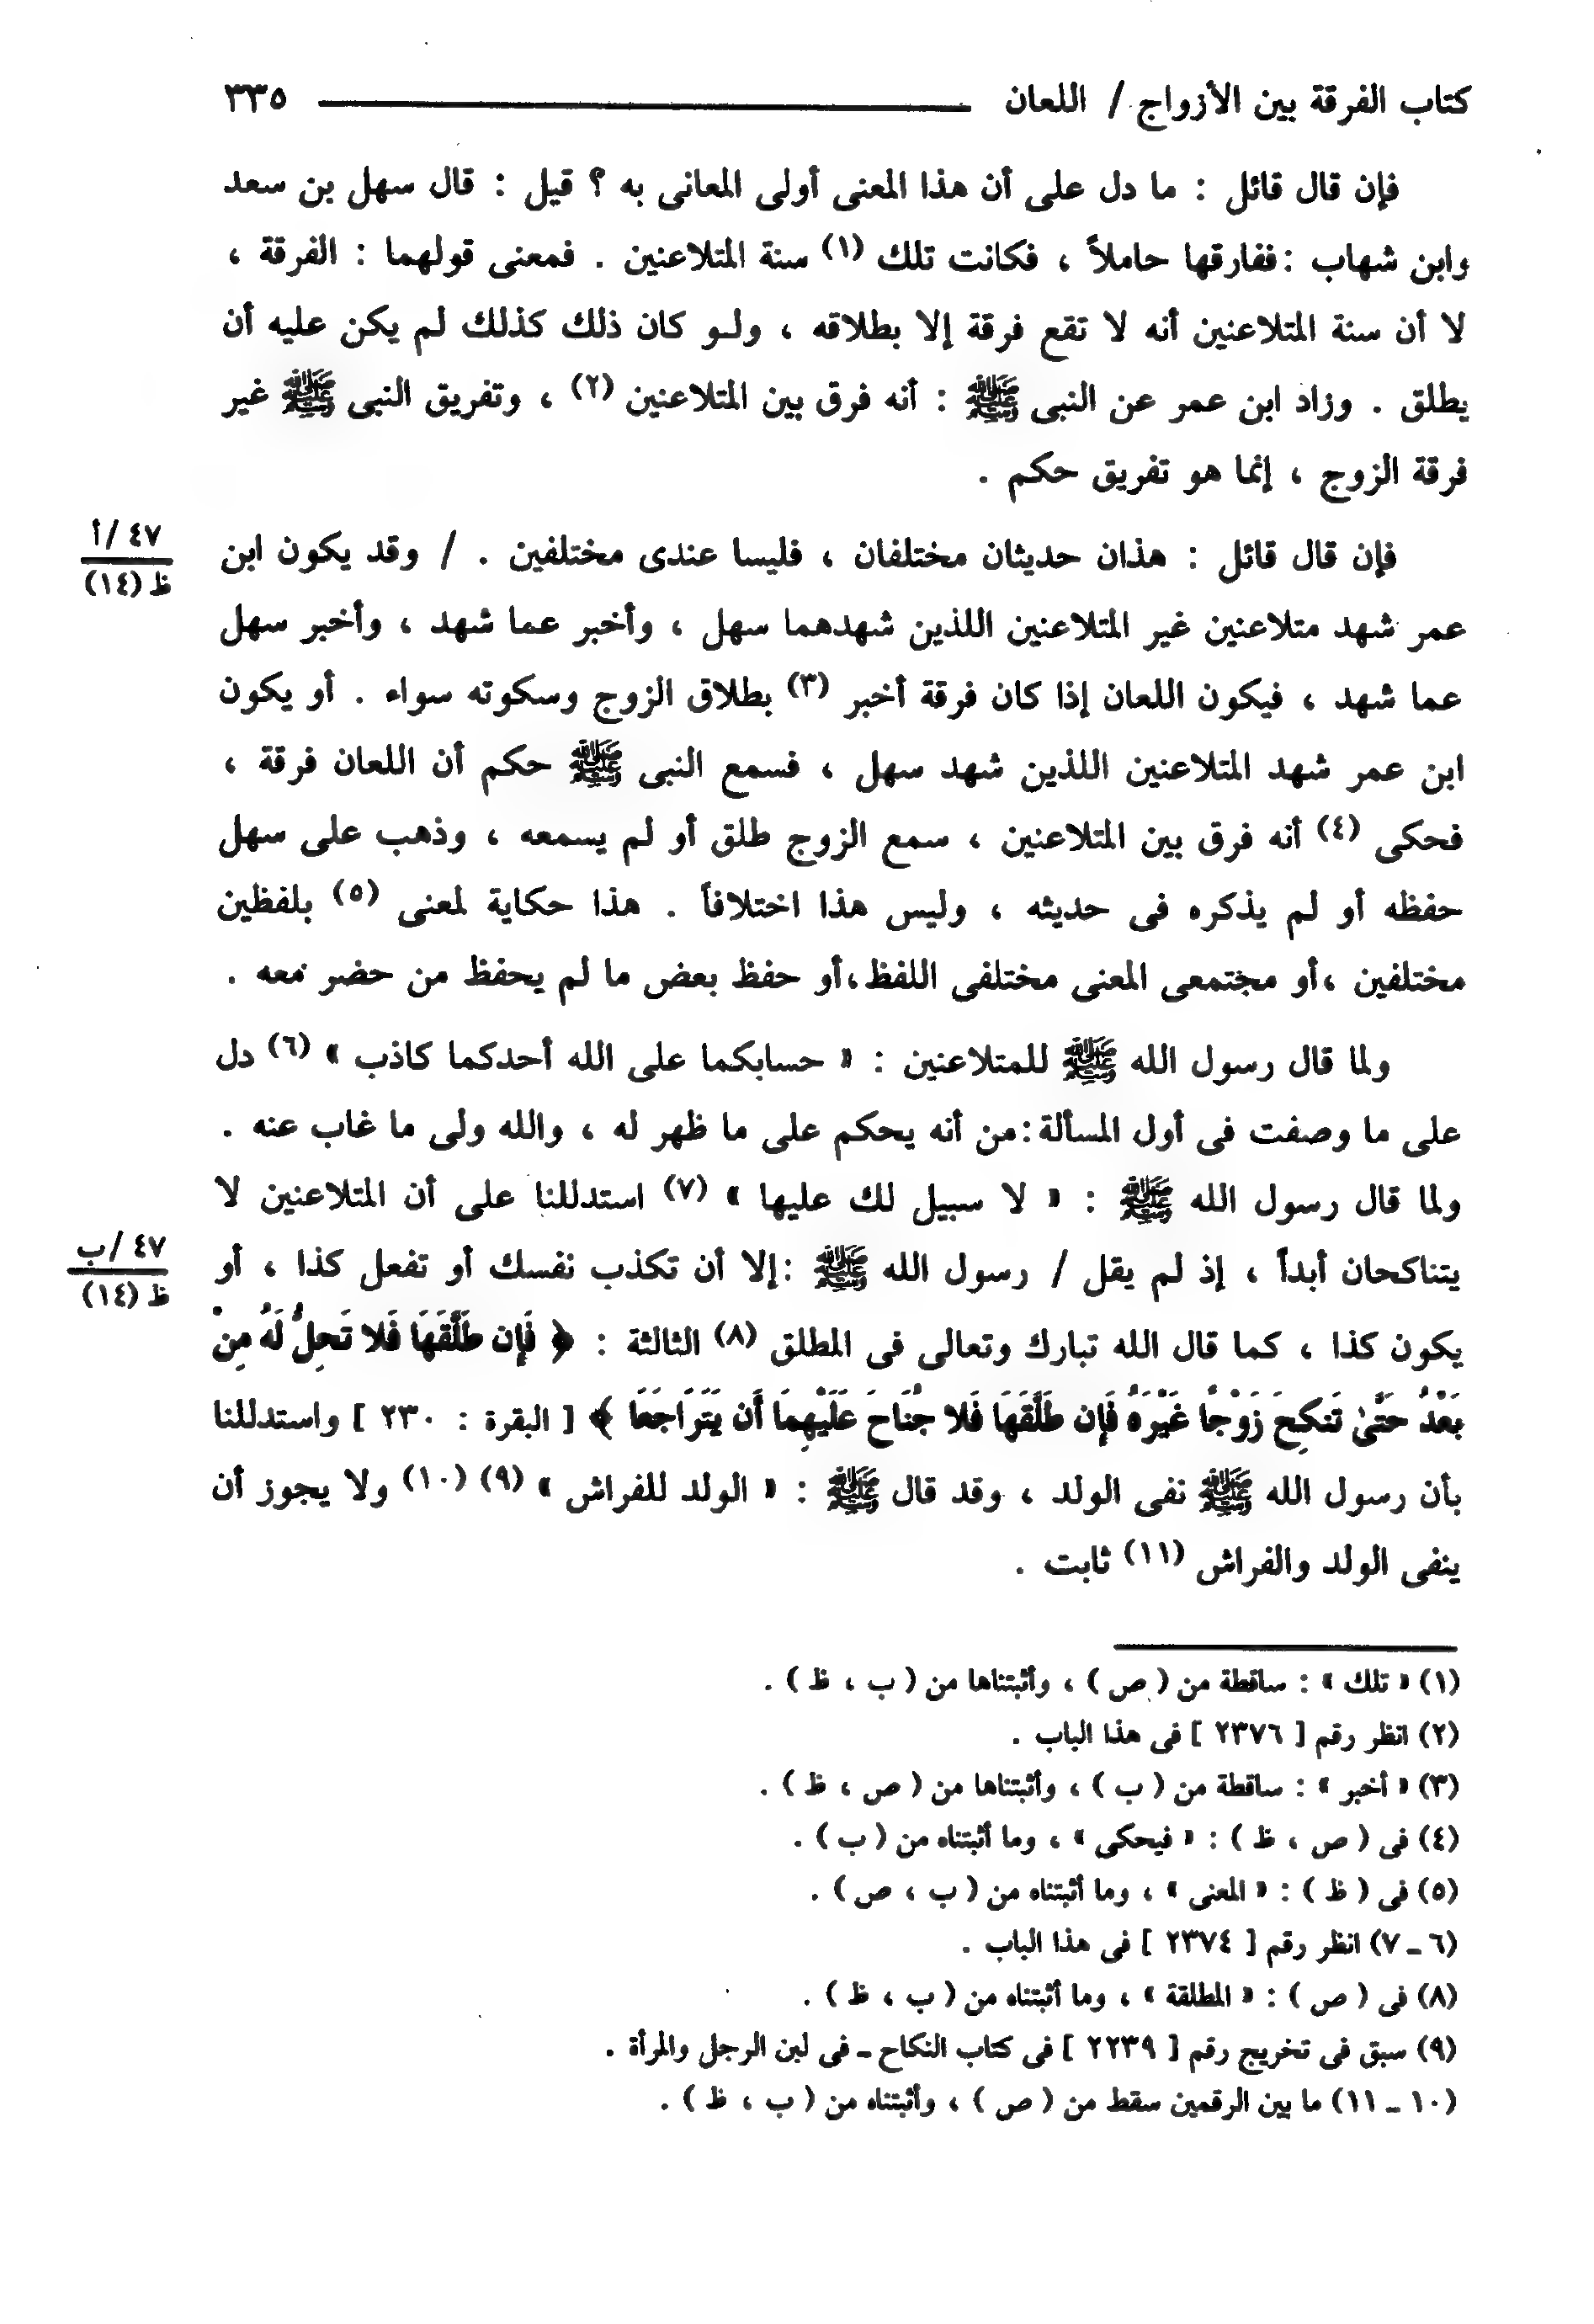 كتاب الفرقة بين الأزواج / اللعان ٣٣٥
فإن قال قائل : ما دل على أن هذا المعنى أولى المعانى به ؟ قيل : قال سهل بن سعد
وابن شهاب :ففارقها حاملاً ، فكانت تلك (١) سنة المتلاعنين . فمعنى قولهما : الفرقة ،
لا أن سنة المتلاعنين أنه لا تقع فرقة إلا بطلاقه ، ولـو كان ذلك كذلك لم يكن عليه أن
يطلق . وزاد ابن عمر عن النبى ﷺ : أنه فرق بين المتلاعنين (٢) ، وتفريق النبى ﷺ غير
فرقة الزوج ، إنما هو تفريق حكم .
فإن قال قائل : هذان حديثان مختلفان ، فليسا عندى مختلفين . / وقد يكون ابن
٤٧ /أ
ظ (١٤)
عمر شهد متلاعنين غير المتلاعنين اللذين شهدهما سهل ، وأخبر عما شهد ، وأخبر سهل
عما شهد ، فيكون اللعان إذا كان فرقة أخبر (٣) بطلاق الزوج وسكوته سواء . أو يكون
ابن عمر شهد المتلاعنين اللذين شهد سهل ، فسمع النبى ﷺ حكم أن اللعان فرقة ،
فحكى (٤) أنه فرق بين المتلاعنين ، سمع الزوج طلق أو لم يسمعه ، وذهب على سهل
حفظه أو لم يذكره فى حديثه ، وليس هذا اختلافاً . هذا حكاية لمعنى (٥) بلفظين
مختلفين ،أو مجتمعى المعنى مختلفى اللفظ،أو حفظ بعض ما لم يحفظ من حضر معه .
ولما قال رسول الله ﷺ للمتلاعنين : « حسابكما على الله أحدكما كاذب » (٦) دل
على ما وصفت فى أول المسألة:من أنه يحكم على ما ظهر له ، والله ولى ما غاب عنه .
ولما قال رسول الله ﷺ : « لا سبيل لك عليها » (٧) استدللنا على أن المتلاعنين لا
يتناكحان أبداً ، إذ لم يقل / رسول الله ﷺ :إلا أن تكذب نفسك أو تفعل كذا ، أو
٤٧ /ب
ظ (١٤)
يكون كذا ، كما قال الله تبارك وتعالى فى المطلق (٨) الثالثة : ﴿ فَإِن طَلَّقَهَا فَلا تَحِلُّ لَهُ مِنْ
بَعْدُ حَتَّىٰ تَنكِحَ زَوْجًا غَيْرَهُ فَإِن طَلَّقَهَا فَلا جُنَاحَ عَلَيْهِمَا أَن يَتَرَاجَعَا ﴾ [ البقرة : ٢٣٠ ] واستدللنا
بأن رسول الله ﷺ نفى الولد ، وقد قال ﷺ : « الولد للفراش » (٩) (١٠) ولا يجوز أن
ينفى الولد والفراش (١١) ثابت .
(١) « تلك » : ساقطة من ( ص ) ، وأثبتناها من ( ب ، ظ ) .
(٢) انظر رقم [ ٢٣٧٦ ] فى هذا الباب .
(٣) « أخبر » : ساقطة من ( ب ) ، وأثبتناها من ( ص ، ظ ) .
(٤) فى ( ص ، ظ ) : « فيحكى » ، وما أثبتناه من ( ب ) .
(٥) فى ( ظ ) : « المعنى » ، وما أثبتناه من ( ب ، ص ) .
(٦ ـ ٧) انظر رقم [ ٢٣٧٤ ] فى هذا الباب .
(٨) فى ( ص ) : « المطلقة » ، وما أثبتناه من ( ب ، ظ ) .
(٩) سبق فى تخريج رقم [ ٢٢٣٩ ] فى كتاب النكاح ـ فى لبن الرجل والمرأة .
(١٠ ـ ١١) ما بين الرقمين سقط من ( ص ) ، وأثبتناه من ( ب ، ظ ) .